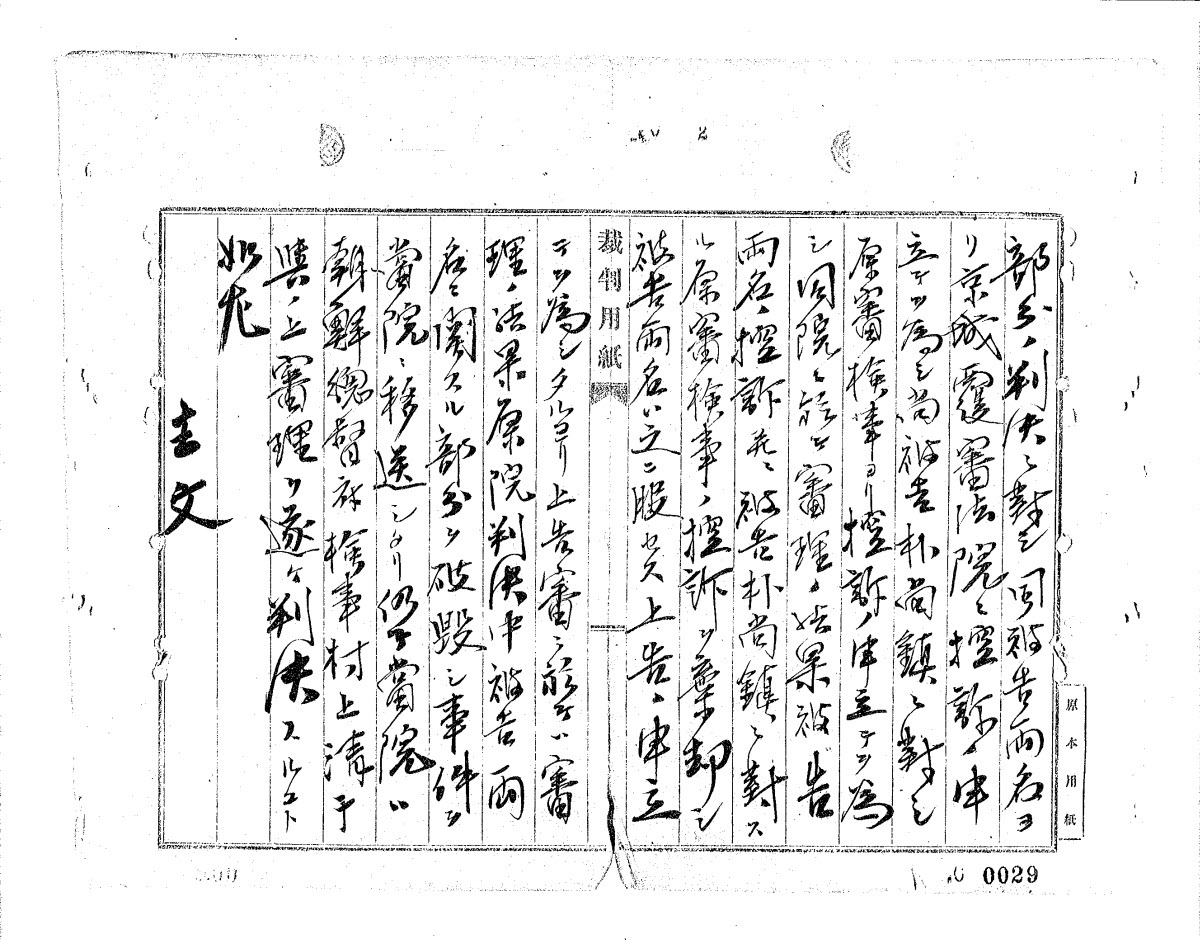 部分ノ判決ニ對シ同被告両名ヨ
リ京城覆審法院ニ控訴ノ申
立テヲ爲シ尚被告朴尚鎮ニ對シ
原審検事ヨリ控訴ノ申立テヲ爲
シ同院ニ於テ審理ノ結果被告
両名ノ控訴並ニ被告朴尚鎮ニ對ス
ル原審検事ノ控訴ヲ棄却シ
被告両名ハ之ニ服セス上告ノ申立
裁判用紙
テヲ爲シタルヨリ上告審ニ於テハ審
理ノ結果原院判決中被告両
名ニ関スル部分ヲ破毀シ事件ヲ
當院ニ移送シタリ仍テ當院ハ
朝鮮總督府検事村上清干
與ノ上審理ヲ遂ケ判決スルコト
如左
主文
原本用紙
0029